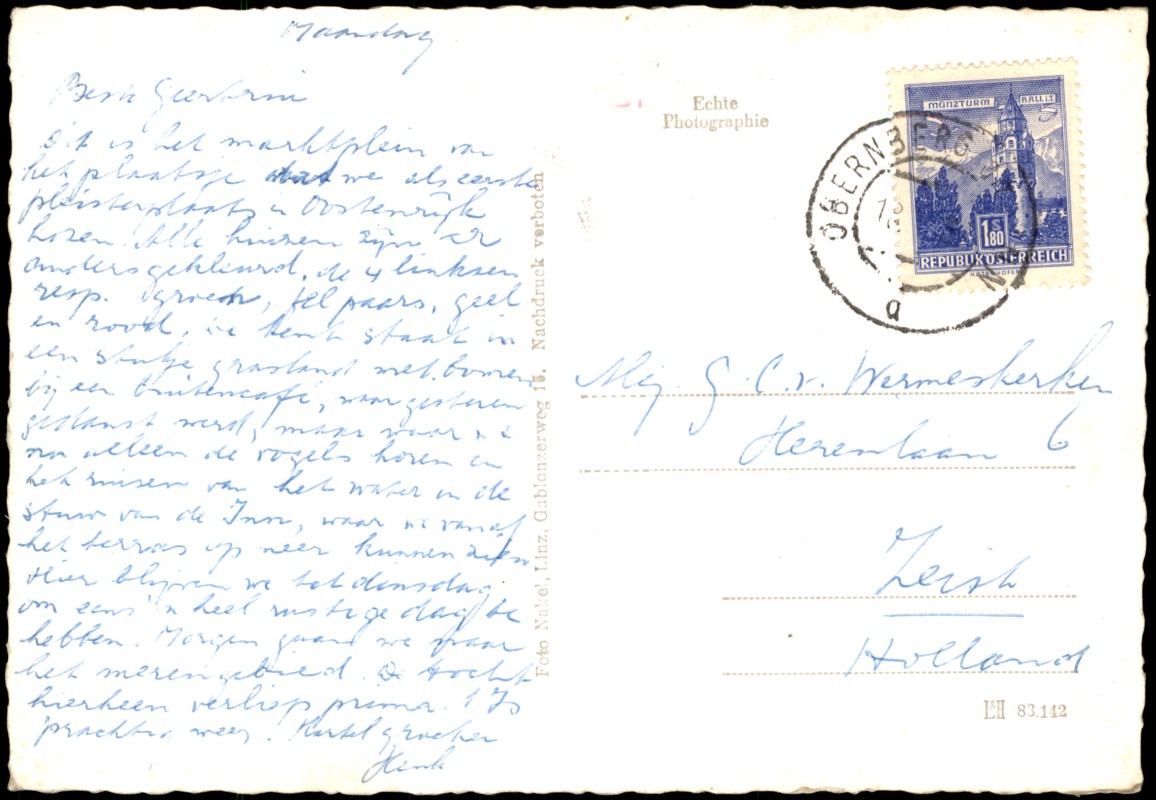 Maandag
Beste Geertruu
Dit is het marktplein van
het plaatsje dat we als eerste
pleisterplaats in Oostenrijk
kozen. Alle huizen zijn er
anders gekleurd, de 4 linksen
resp. groen, fel paars, geel
en rood. De tent staat in
een stukje grasland met bomen
bij een buitencafé, waar gisteren
gedanst werd, maar waar we
nu alleen de vogels horen en
het ruisen van het water in de
stuw van de Inn, waar we vanaf
het terras op neer kunnen zien
Hier blijven we tot dinsdag
om eens 'n heel rustige dag te
hebben. Morgen gaan we naar
het merengebied. De tocht
hierheen verliep prima. 't Is
prachtig weer. Hartel groeten
Henk
Foto Nakel, Linz, Gablonzerweg 15. Nachdruck verboten
Echte
Photographie
MÜNZTURM HALL i.T.
S
1.80
REPUBLIK ÖSTERREICH
OBERNBERG INN
a
Mej. G. C. v. Wermeskerken
Herenlaan 6
Zeist
Holland
L&H 83.142